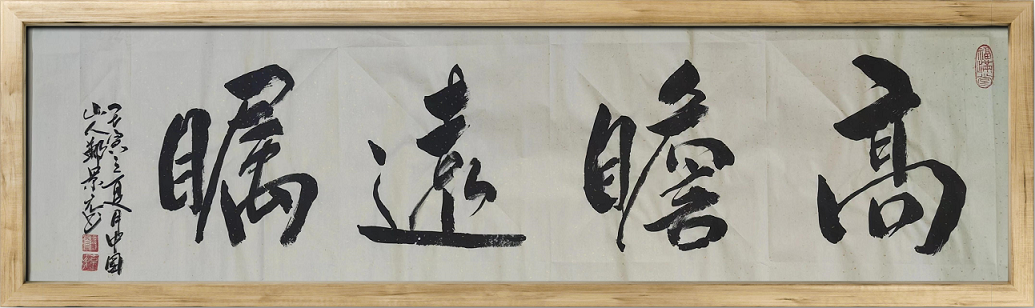 高瞻遠矚
之夏月中国
山人鄭景